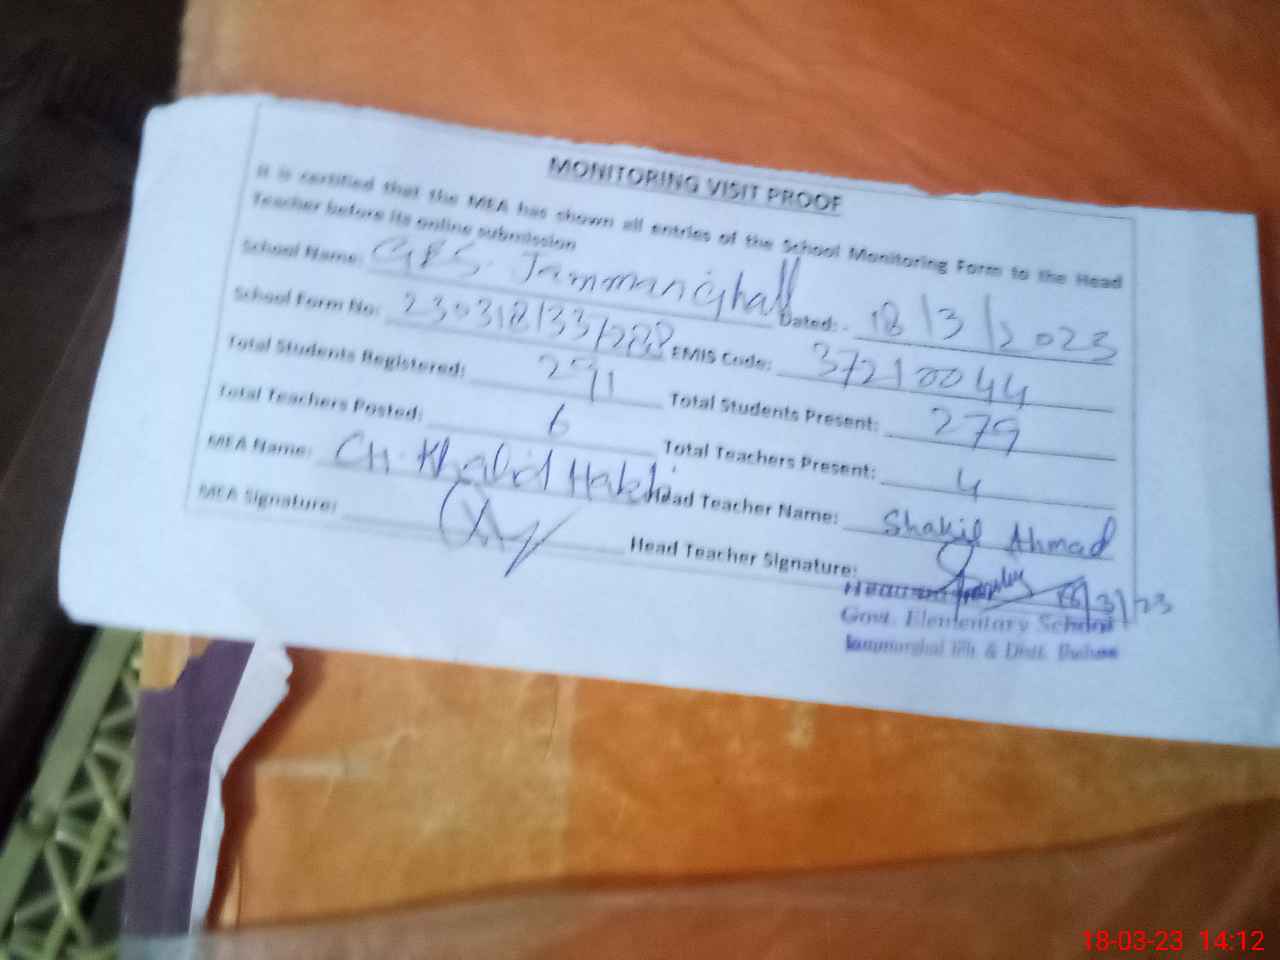 MONITORING VISIT PROOF
It is certified that the MEA has shown all entries of the School Monitoring Form to the Head
Teacher before its online submission
School Name: GES. Jammarighall Dated:- 18/3/2023
School Form No: 230318/33/288 EMIS Code: 37210044
Total Students Registered: 291 Total Students Present: 279
Total Teachers Posted: 6 Total Teachers Present: 4
MEA Name: CH. Khalid Head Teacher Name: Shakil Ahmad
MEA Signature: Head Teacher Signature:
18/3/23
Govt. Elementary School
& Distt.
18-03-23 14:12